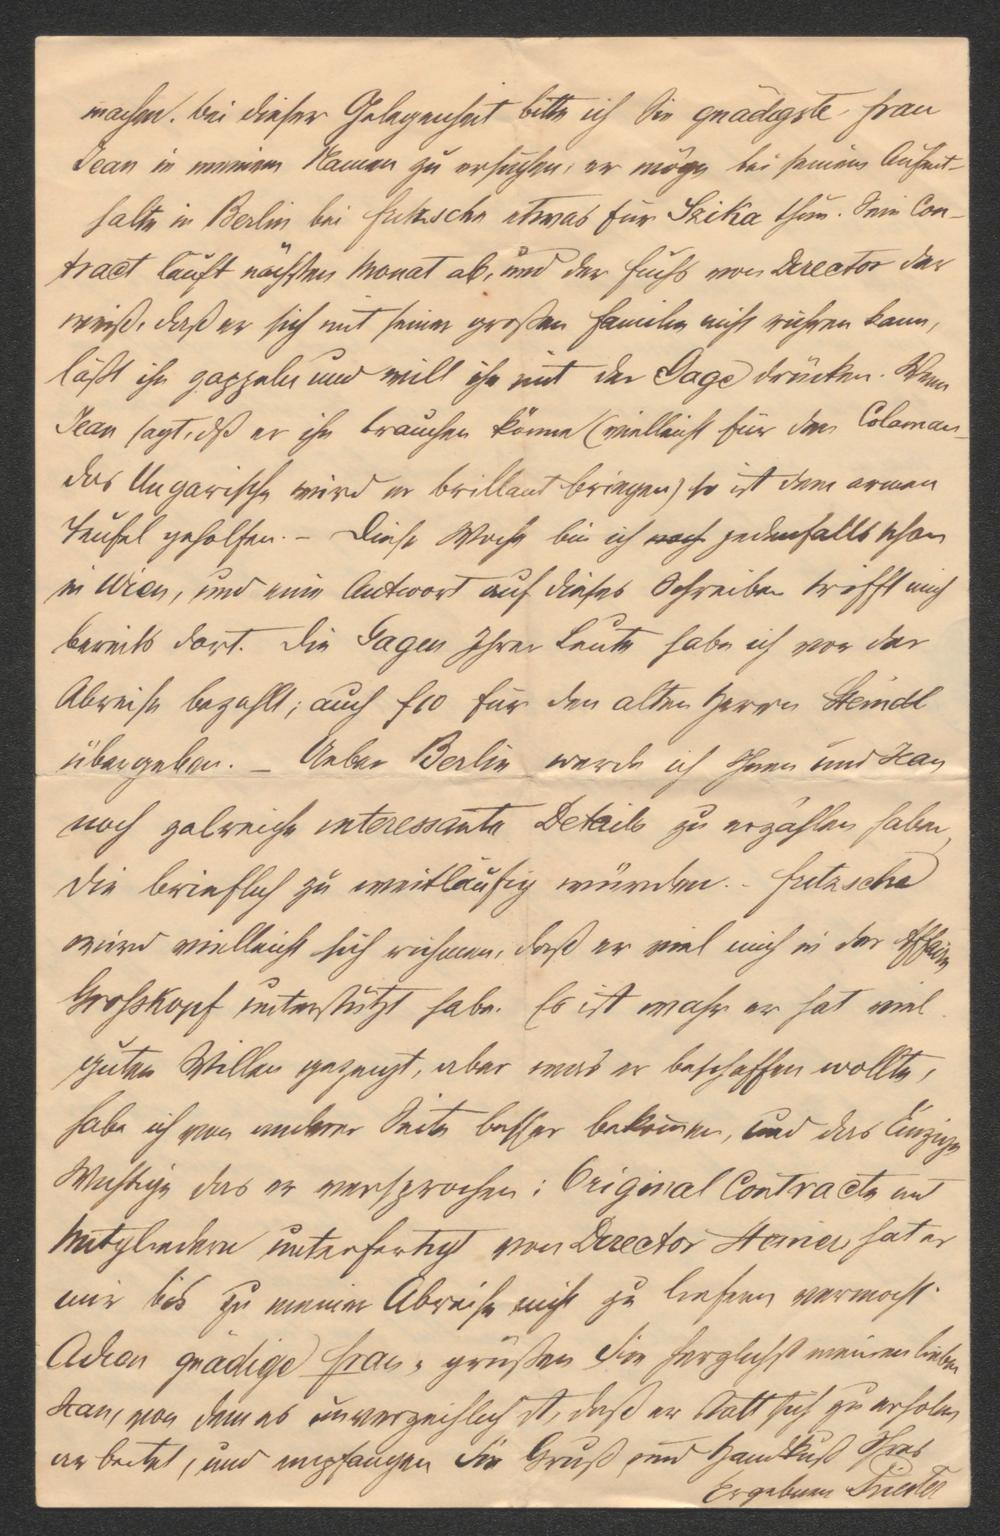 machen. Bei dieser Gelegenheit bitte ich Sie gnädigste Frau
Jean in meinem Namen zu ersuchen, er möge bei seinem Aufent-
halte in Berlin bei Fritzsche etwas für Szika thun. Sein Con-
tract läuft nächsten Monat ab, und der Fuchs von Director der
weiß, daß er sich mit seiner großen Familie nicht rühren kann,
läßt ihn zappeln und will ihn mit der Gage drücken. Wenn
Jean sagt, dß er ihn brauchen könne (vielleicht für den Coloman
das Ungarische wird er brillant bringen) so ist dem armen
Teufel geholfen. – Diese Woche bin ich noch jedenfalls schon
in Wien, und eine Antwort auf dieses Schreiben trifft mich
bereits dort. Die Gagen Ihrer Leute habe ich vor der
Abreise bezahlt; auch f10 für den alten Herrn Steindl
übergeben. – Ueber Berlin werde ich Ihnen und Jean
noch zalreiche interessante Details zu erzählen haben,
die brieflich zu weitläufig würden. – Fritzsche
wird vielleicht sich rühmen, daß er viel mich in der Affaire
Großkopf unterstützt habe. Es ist wahr er hat viel
guten Willen gezeigt, aber was er beschaffen wollte,
habe ich von anderer Seite besser bekommen, und das Einzige
Wichtige das er versprochen: Original Contracte mit
Mitgliedern unterfertigt von Director Steiner, hat er
mir bis zu meiner Abreise nicht zu liefern vermocht.
Adieu gnädige Frau, grüßen Sie herzlichst meinen lieben
Jean, von dem es unverzeihlich ist, daß er statt sich zu erholen
arbeitet, und empfangen Sie Gruß und Handkuß Ihres
Ergebenen Priester